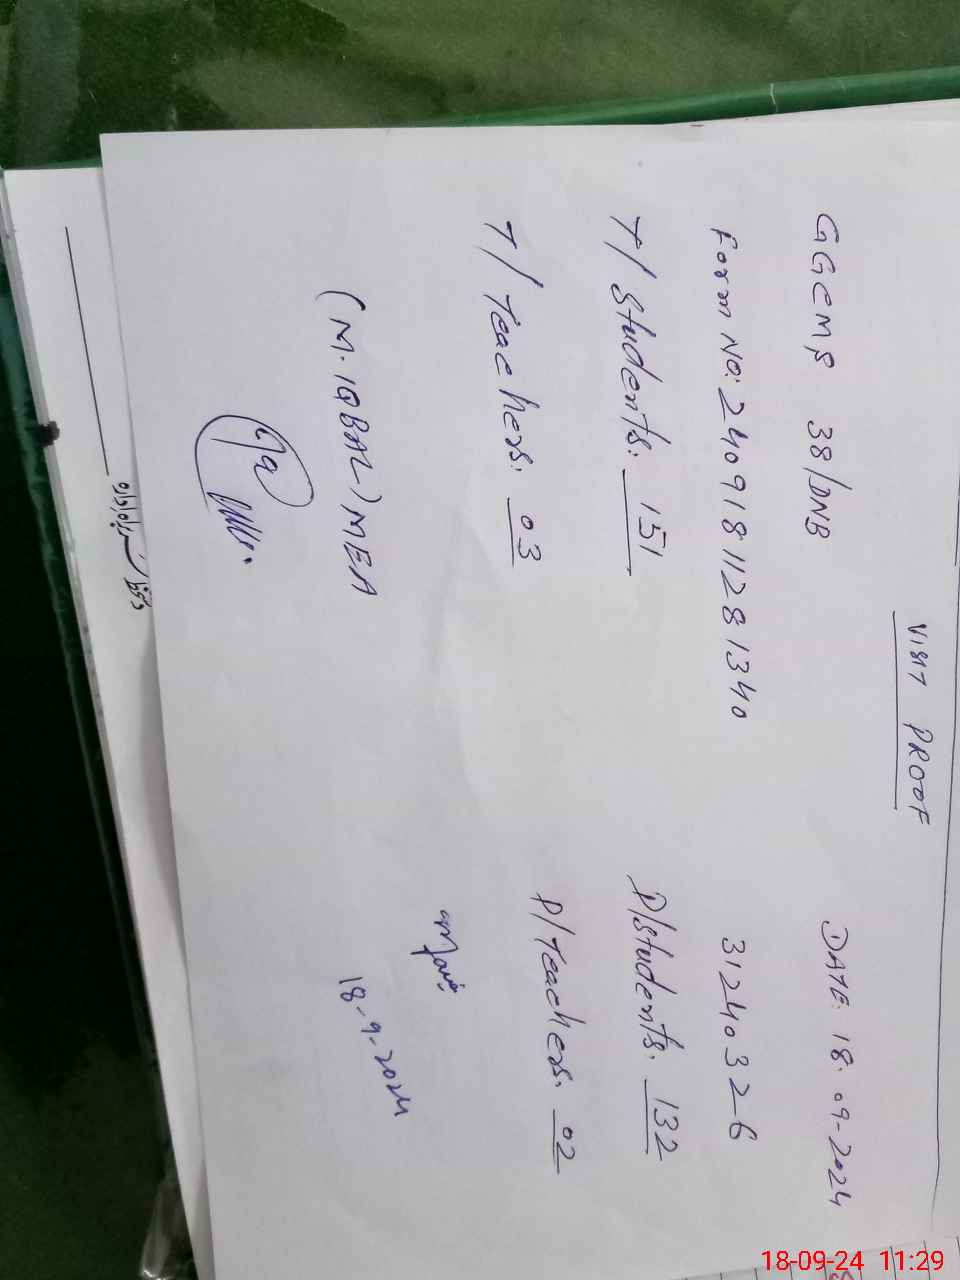 VISIT PROOF
GGCMS 38/DNB DATE: 18.09-2024
Form No: 24091811281340 31240326
T/Students: 151 P/Students: 132
T/Teachers: 03 P/Teachers: 02
(M. IQBAL) MEA
18-9-2024
دستخط سربراہ ادارہ
18-09-24 11:29